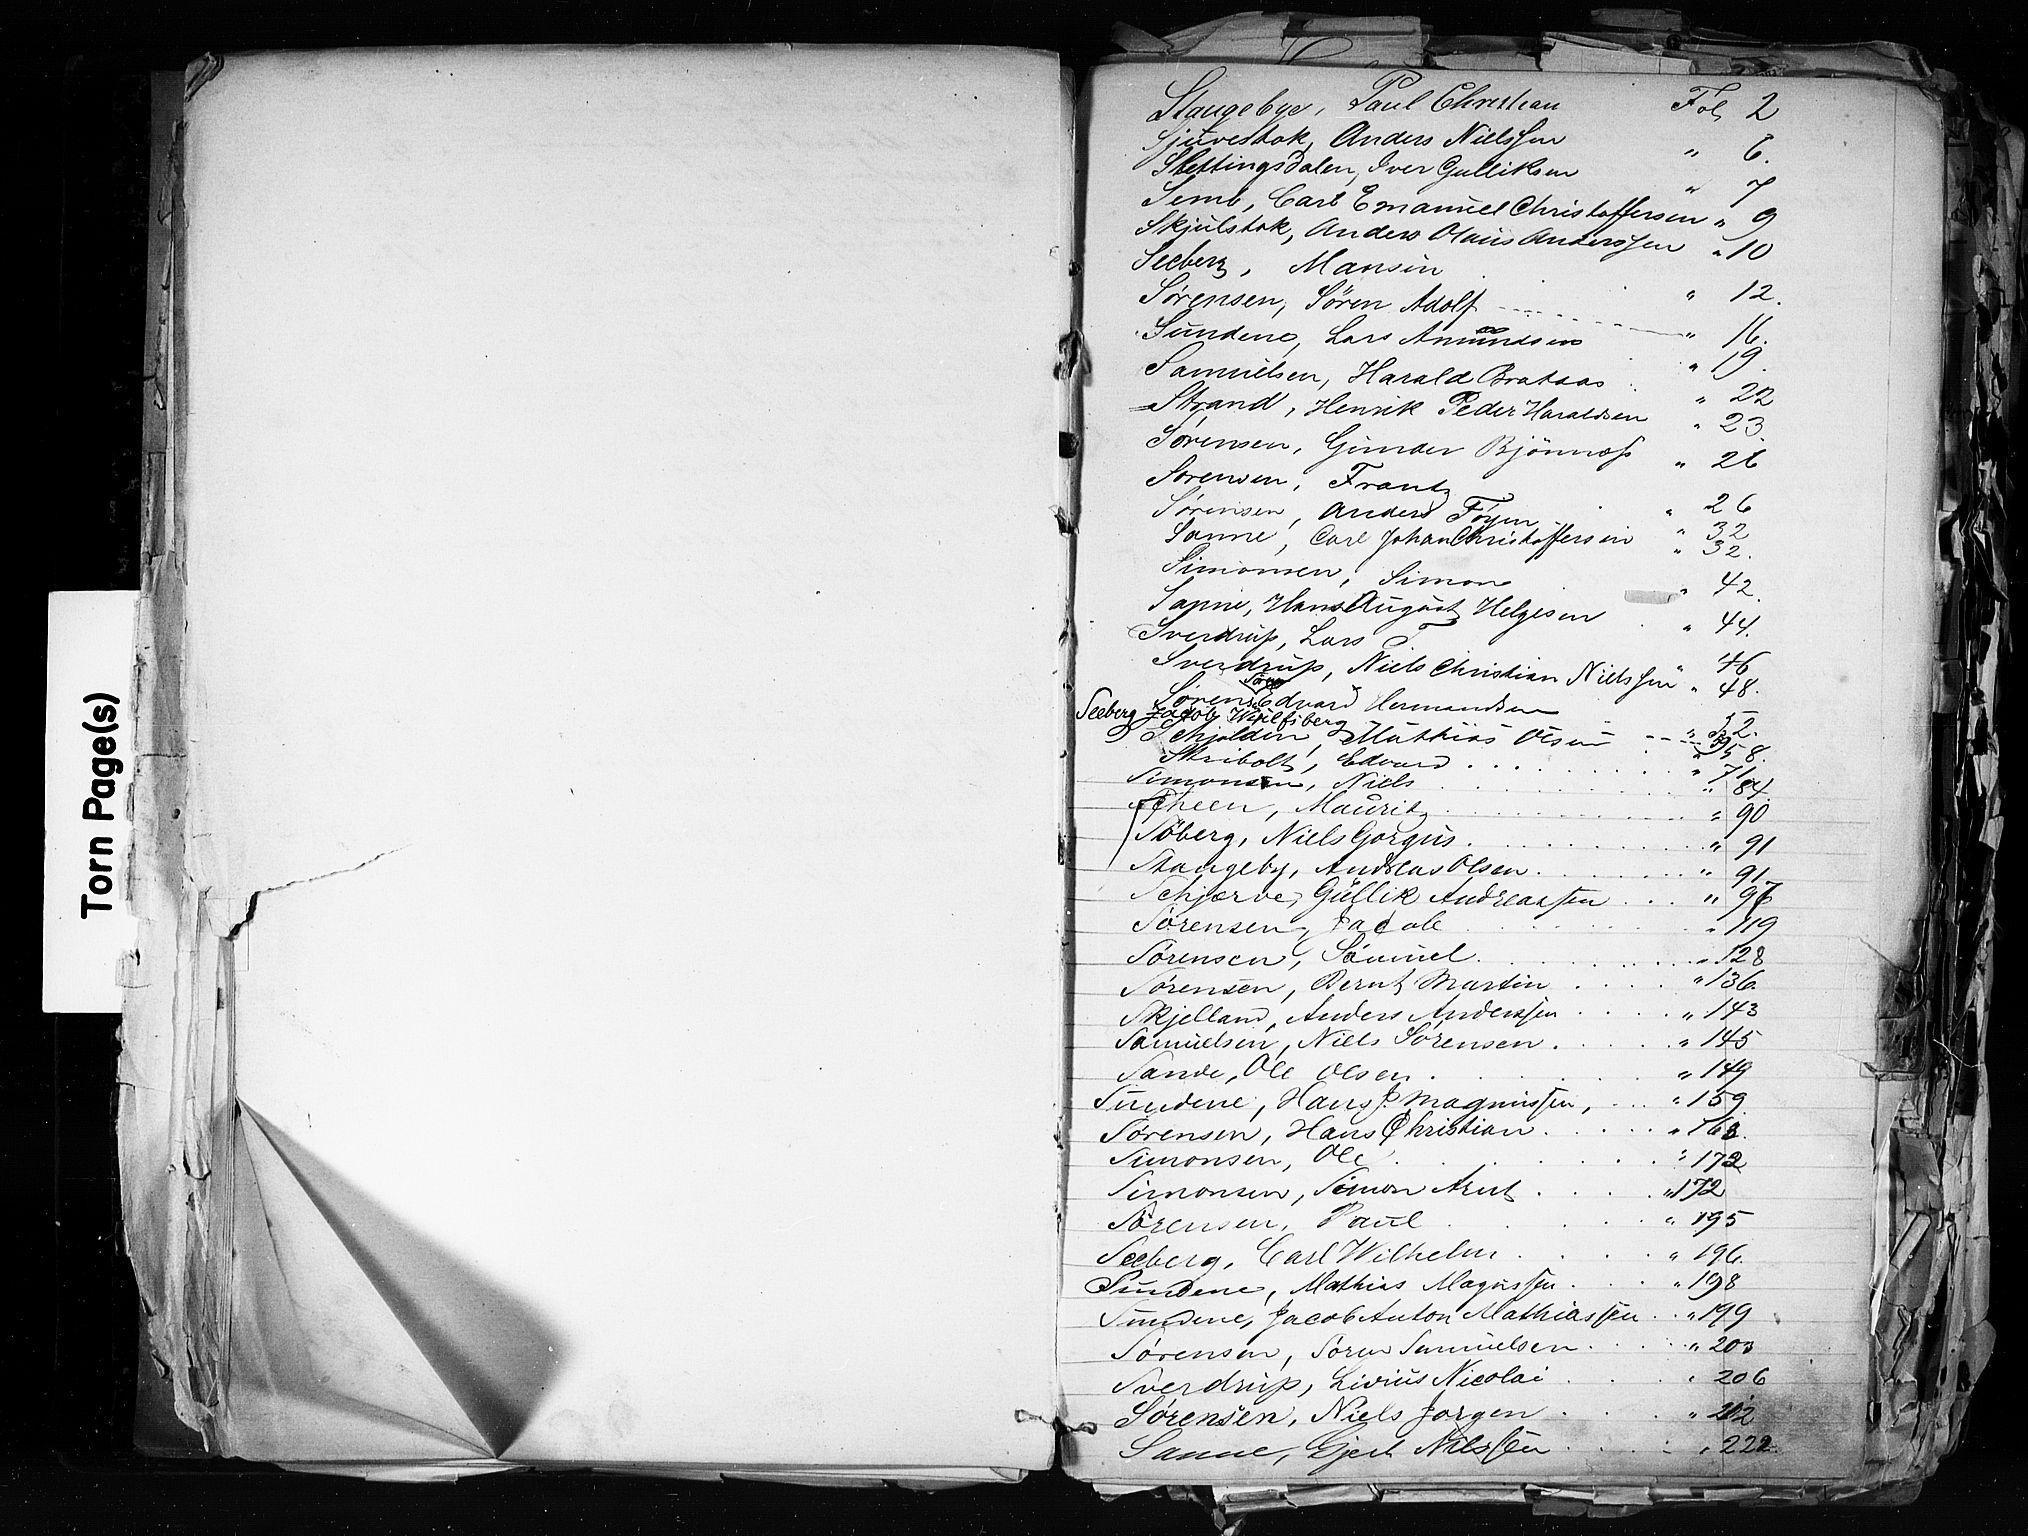 Torn Page(s)
Stangebye, Paul Christian Fol. 2
Sjuvestok, Anders Nielssen " 6.
Slettingsdalen, Iver Gulliksen " 7
Semb, Carl Emanuel Christoffersen " 9
Skjulstok, Anders Olaus Anderssen " 10
Seeberg, Mansin " 12.
Sørensen, Sören Adolf " 16.
Sundene, Lars Amundsen " 19.
Samuelsen, Harald Brataas " 22
Strand, Henrik Peder Haraldsen " 23.
Sørensen, Gunder Bjönnæss " 26
Sørensen, Frantz " 26
Sørensen, Anders Föyen " 32
Sanne, Carl Johan Christoffersen " 32.
Simonsen, Simon " 42.
Sanne, Hans August Helgesen " 44.
Sverdrup, Lars T. " 46
Sverdrup, Niels Christian Nielssen " 48.
Sørensen, Edvard Hermandsen 52.
Seeberg Jacob Wulfsberg "
Schjoldin, Mathias Olsen " 58.
Stribolt, Edvard " 71.
Simonsen, Niels " 84.
Scheen, Mauritz " 90
Søberg, Niels Gorgus " 91
Stangeby, Andreas Olsen " 91.
Schjærve, Gullik Andreassen " 97
Sørensen, Jacob " 119
Sørensen, Samuel " 128
Sørensen, Bernt Martin " 136.
Skjelland, Anders Anderssen " 143
Samuelsen, Niels Sørensen " 145
Sande, Ole Olsen " 149
Sundene, Hans J. Magnussen, " 159.
Sørensen, Hans Christian " 163.
Simonsen, Ole " 172
Simonsen, Simon Arnt " 172
Sørensen, Paul " 195
Seeberg, Carl Wilhelm " 196.
Sundene, Mathias Magnussen " 198
Sundene, Jacob Anton Mathiassen " 199
Sørensen, Søren Samuelsen " 203
Sverdrup, Livius Nicolai " 206
Sørensen, Niels Jørgen " 212
Sanne, Gjert Nilssen " 222.